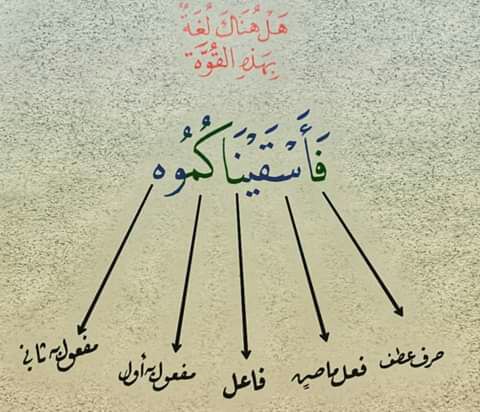 هَلْ هُنَاكَ لُغَةٌ
بِهَذِهِ القُوَّةِ
فَأَسْقَيْنَاكُمُوه
حرف عطف
فعل ماضٍ
فاعل
مفعول به أول
مفعول به ثاني